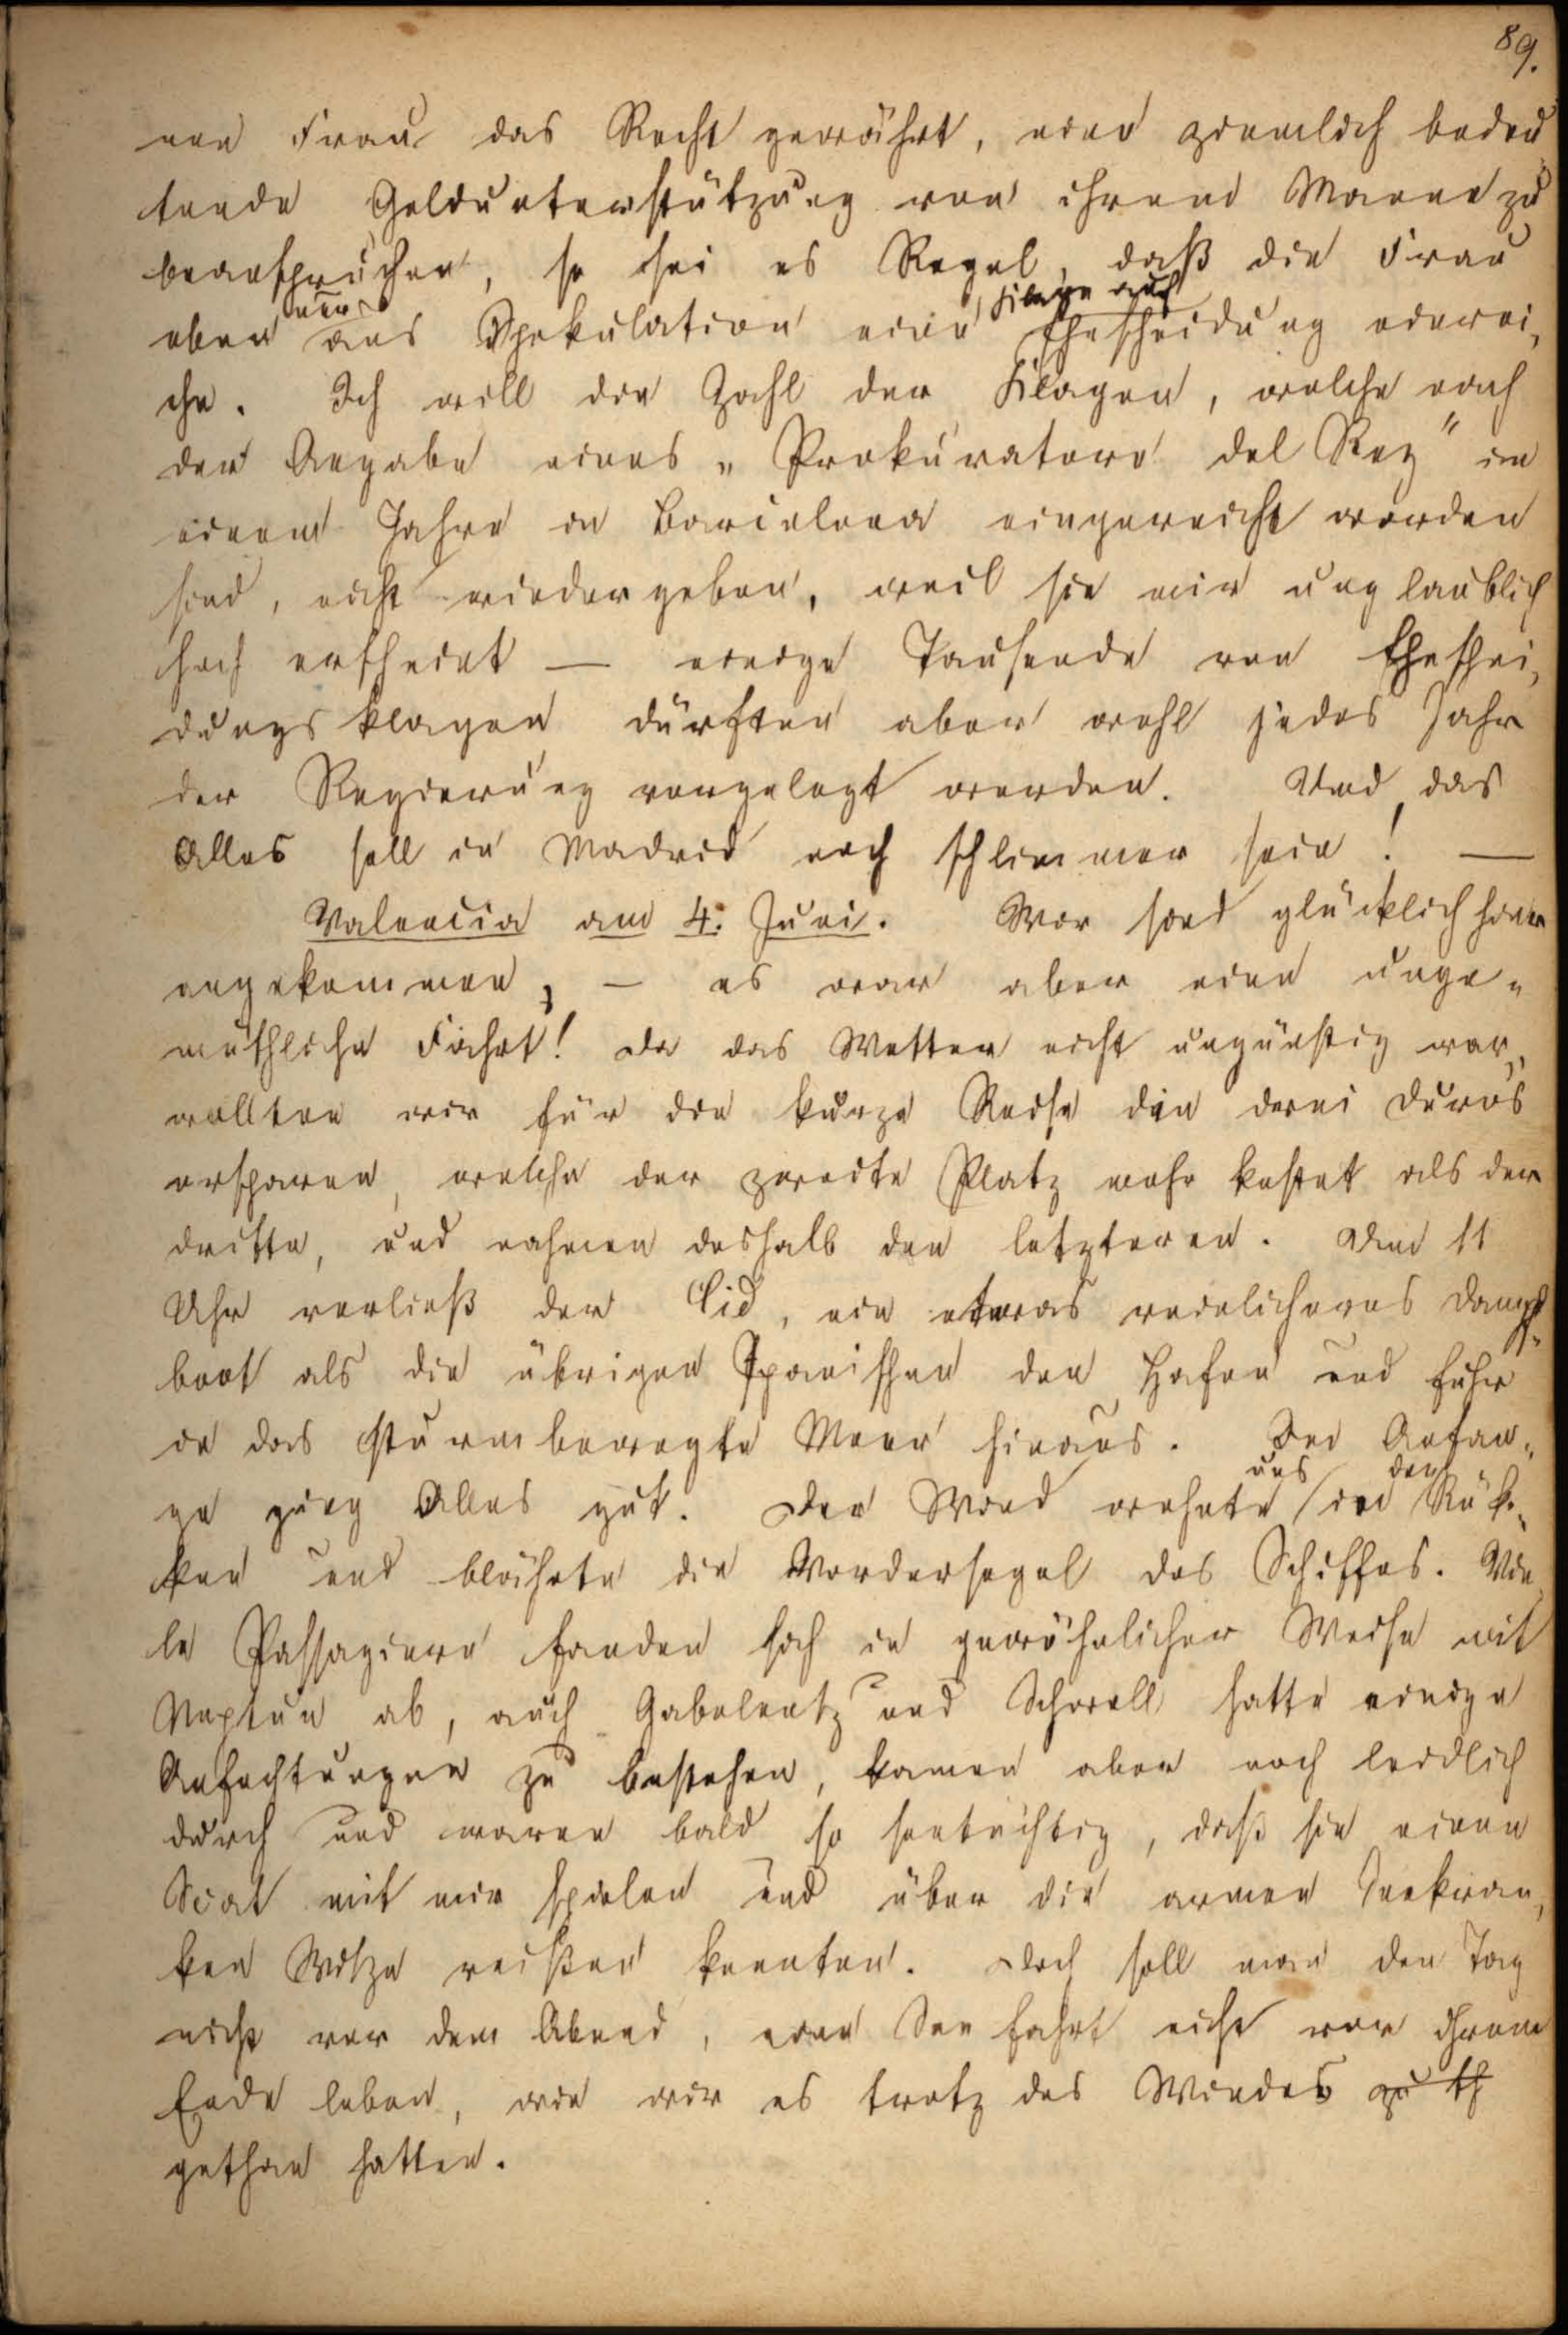 89.
nen Frau das Recht gewährt, eine ziemlich bedeu
tende Geldunterstützung von ihrem Manne zu
beanspruchen, so sei es Regel, daß die Frau
eben nur aus Spekulation eine Klage auf Ehescheidung einrei-
che. Ich will die Zahl der Klagen, welche nach
der Angabe eines „Prokuratore del Rey" in
einem Jahre in Barcelona eingereicht worden
sind, nicht wiedergeben, weil sie mir unglaublich
hoch erscheint — einige Tausende von Eheschei-
dungsklagen dürften aber wohl jedes Jahr
der Regierung vorgelegt werden. Und das
Alles soll in Madrid noch schlimmer sein! —
Valencia am 4. Juni. Wir sind glücklich hier
angekommen, — es war aber eine unge-
müthliche Fahrt! Da das Wetter nicht ungünstig war,
wollten wir für die kurze Reise die drei Duros
ersparen, welche der zweite Platz mehr kostet als der
dritte, und nahmen deshalb den letzteren. Um 11
Uhr verließ der Cid, ein etwas reinlicheres Dampf-
boot als die übrigen Spanischen den Hafen und fuhr
in das sturmbewegte Meer hinaus. Im Anfan-
ge ging Alles gut. Der Wind wehte uns in den Rük-
ken und blähete die Vordersegel des Schiffes. Vie
le Passagiere fanden sich in gewöhnlicher Weise mit
Neptun ab, auch Gabelentz und Schwell hatte einige
Anfechtungen zu bestehen, kamen aber noch leidlich
durch und waren bald so seetüchtig, daß sie einen
Scat mit mir spielen und über die armen Seekran-
ken Witze reißen konnten. Doch soll man den Tag
nicht vor dem Abend, eine Seefahrt nicht vor ihrem
Ende loben, wie wir es trotz des Windes zu th
gethan hatten.